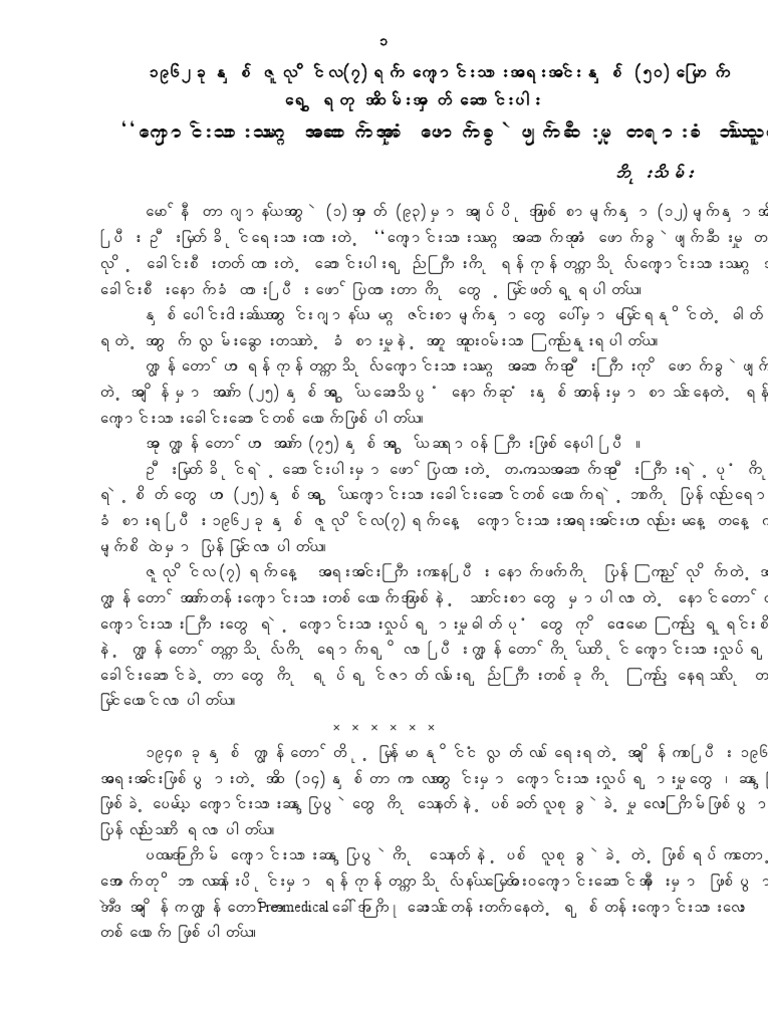 ၁
၁၉၆၂ခုနှစ် ဇူလိုင်လ(၇)ရက် ကျောင်းသားအရေးအခင်းနှစ် (၅၀) မြောက်
ရွှေရတု အထိမ်းအမှတ် ဆောင်းပါး
“ကျောင်းသားသမဂ္ဂ အဆောက်အုံ ဖောက်ခွဲ ဖျက်ဆီးမှု တရားခံ ဘယ်သူ
ဘိုးသိမ်း
မော်နီတာဂျာနယ်အတွဲ (၁) အမှတ် (၉၃) မှာ အုပ်ပိုအဖြစ် စာမျက်နှာ (၁၂) မျက်နှာ
ပြီး ဦးမြတ်ခိုင်ရေးသားထားတဲ့ “ကျောင်းသားသမဂ္ဂ အဆောက်အုံ ဖောက်ခွဲဖျက်ဆီးမှု
လို့ ခေါင်းစီးတတ်ထားတဲ့ ဆောင်းပါးရှည်ကြီးကို ရန်ကုန်တက္ကသိုလ်ကျောင်းသားသမဂ္ဂ
ခေါင်းစီးနောက်ခံထားပြီး ဖော်ပြထားတာကို တွေ့မြင်ဖတ်ရှုရပါတယ်။
နှစ်ပေါင်းငါးဆယ်အတွင်းဂျာနယ် မဂ္ဂဇင်းစာမျက်နှာတွေပေါ်မှာ မမြင်ရနိုင်တဲ့ ဓါတ်
ရတဲ့အတွက် လွမ်းဆွေးတသတဲ့ ခံစားမှုနဲ့အတူ အထူးဝမ်းသာ ကြည်နူးရပါတယ်။
ကျွန်တော်ဟာ ရန်ကုန်တက္ကသိုလ်ကျောင်းသားသမဂ္ဂ အဆောက်အဦးကြီးကို ဖောက်ခွဲဖျက်
တဲ့အချိန်မှာ အသက် (၂၅) နှစ်အရွယ်ဆေးသိပ္ပံ နောက်ဆုံးနှစ်အတန်းမှာ စာသင်နေတဲ့ ရန်
ကျောင်းသားခေါင်းဆောင်တစ်ယောက်ဖြစ်ပါတယ်။
အခု ကျွန်တော်ဟာ အသက် (၇၅) နှစ်အရွယ် ဆရာဝန်ကြီးဖြစ်နေပါပြီ။
ဦးမြတ်ခိုင်ရဲ့ ဆောင်းပါးမှာဖော်ပြထားတဲ့ တ.က.သအဆောက်အဦးကြီးရဲ့ပုံကို
ရဲ့စိတ်တွေဟာ (၂၅) နှစ်အရွယ်ကျောင်းသားခေါင်းဆောင်တစ်ယောက်ရဲ့ဘဝကို ပြန်လည်ရော
ခံစားရပြီး ၁၉၆၂ခုနှစ် ဇူလိုင်လ(၇)ရက်နေ့ ကျောင်းသားအရေးအခင်းဟာလည်း မနေ့တနေ့က
မျက်စိထဲမှာ ပြန်မြင်လာပါတယ်။
ဇူလိုင်လ(၇) ရက်နေ့ အရေးအခင်းကြီးကနေပြီး နောက်ဖက်ကို ပြန်ကြည့်လိုက်တဲ့
ကျွန်တော် အထက်တန်းကျောင်းသားတစ်ယောက်အဖြစ်နဲ့ သတင်းစာတွေမှာပါလာတဲ့ နောင်တော်
ကျောင်းသားကြီးတွေရဲ့ ကျောင်းသားလှုပ်ရှားမှုဓါတ်ပုံတွေကို ငေးမောကြည့်ရှုရင်းစိ
နဲ့ ကျွန်တော်တက္ကသိုလ်ကို ရောက်ရှိလာပြီး ကျွန်တော်ကိုယ်တိုင်ကျောင်းသားလှုပ်ရ
ခေါင်းဆောင်ခဲ့တာတွေကို ရုပ်ရှင်ဇာတ်လမ်းရှည်ကြီးတစ်ခုကို ကြည့်နေရသလို
မြင်ယောင်လာပါတယ်။
× × × × × ×
၁၉၄၈ ခုနှစ် ကျွန်တော်တို့ မြန်မာနိုင်ငံလွတ်လပ်ရေးရတဲ့အချိန်ကစပြီး ၁၉၆
အရေးအခင်းဖြစ်ပွားတဲ့အထိ (၁၄) နှစ်တာကာလအတွင်းမှာ ကျောင်းသားလှုပ်ရှားမှုတွေ၊ ဆန္ဒ
ဖြစ်ခဲ့ပေမယ့် ကျောင်းသားဆန္ဒပြပွဲတွေကို သေနတ်နဲ့ ပစ်ခတ်လူစုခွဲခဲ့မှုလေးကြိမ်ဖြစ်ပွာ
ပြန်လည်သတိရလာပါတယ်။
ပထမအကြိမ် ကျောင်းသားဆန္ဒပြပွဲကို သေနတ်နဲ့ ပစ် လူစုခွဲခဲ့တဲ့ ဖြစ်ရပ်ကတော့
အောက်တိုဘာလဆန်းပိုင်းမှာ ရန်ကုန်တက္ကသိုလ်နယ်မြေအဝကျောင်းဆောင်အနီးမှာ ဖြစ်ပွာ
အဲဒီအချိန်ကကျွန်တော်ဟာPremedicalခေါ်အကြိုဆေးသင်တန်းတက်နေတဲ့ ရှစ်တန်းကျောင်းသားလေး
တစ်ယောက်ဖြစ်ပါတယ်။